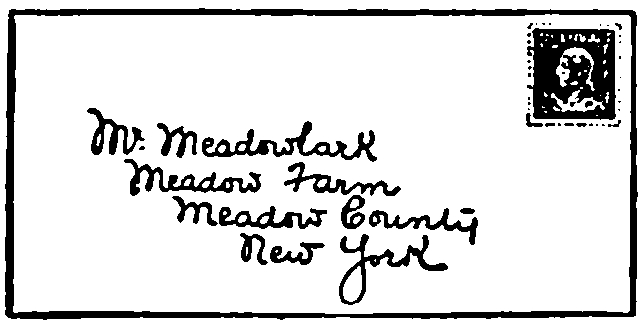 Mr. Meadowlark
Meadow Farm
Meadow County
New York